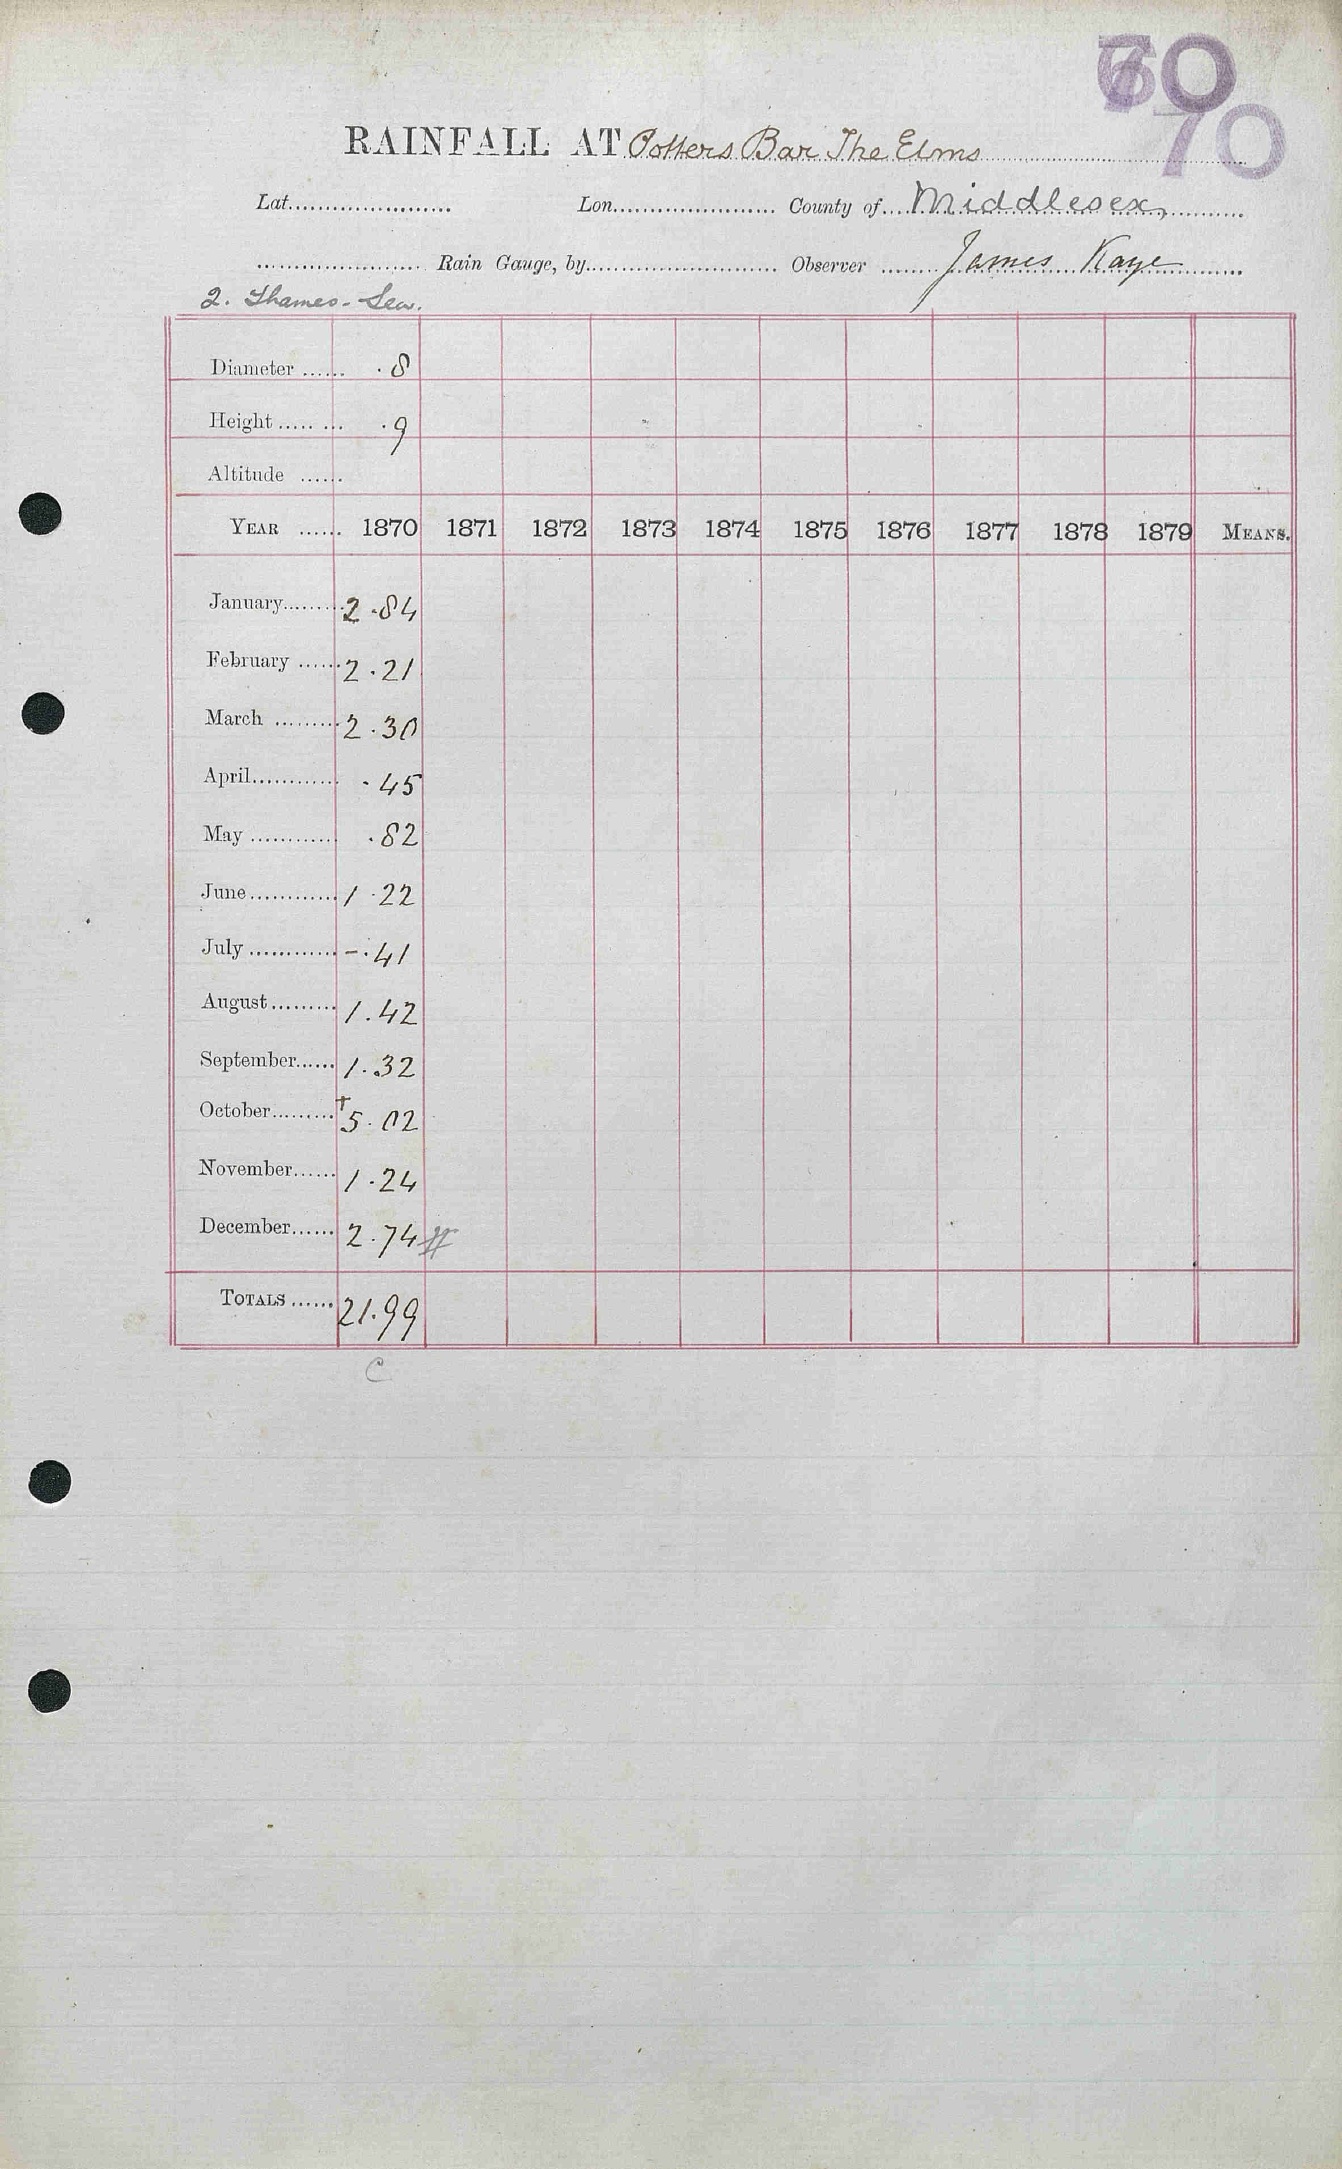 60
70
RAINFALL AT Potters Bar The Elms
Lat...................... Lon...................... County of.... Middlesex,
...................... Rain Gauge, by...................... Observer ........ James Kaye
2. Thames - Lea.
Diameter ...... .8
Height ..... ... .9
Altitude ......
YEAR ...... 1870 1871 1872 1873 1874 1875 1876 1877 1878 1879 MEANS.
January......... 2.84
February ...... 2.21
March ......... 2.30
April............ .45
May ............ .82
June............ 1.22
July ............ -.41
August......... 1.42
September...... 1.32
October......... †5.02
November...... 1.24
December...... 2.74 #
TOTALS ...... 21.99
C